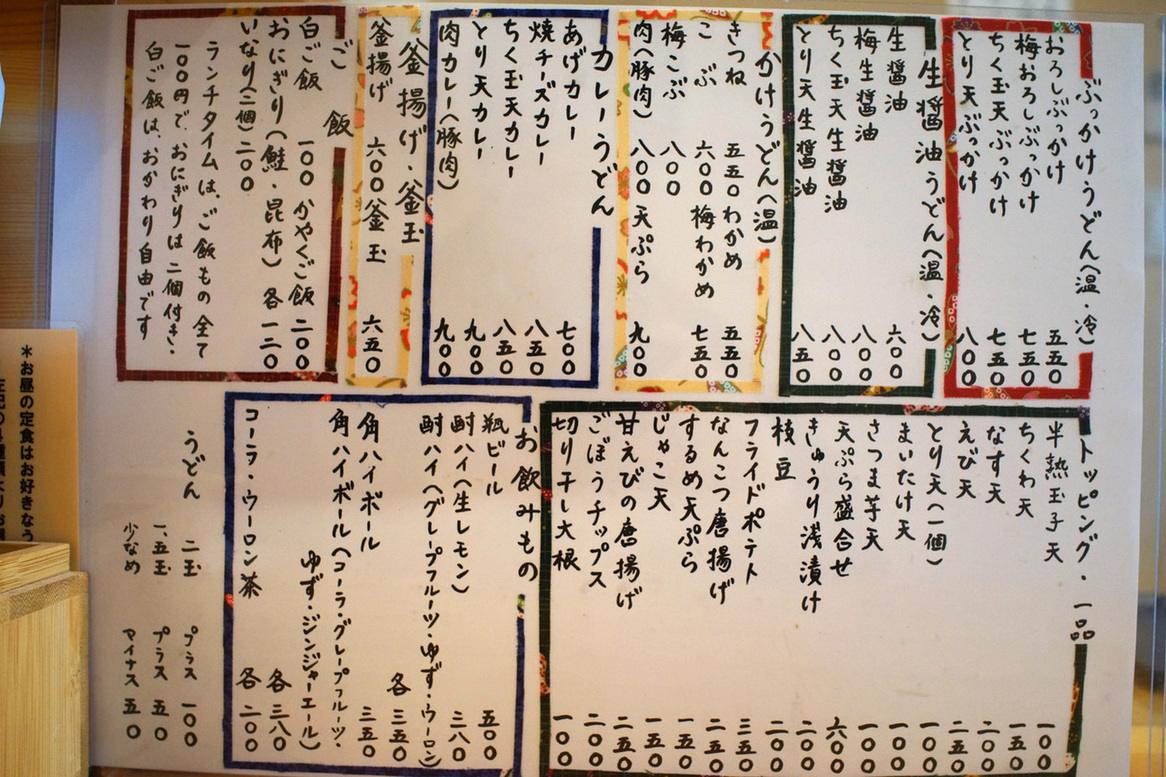 ぶっかけうどん(温・冷)
おろしぶっかけ 五五〇
梅おろしぶっかけ 七五〇
ちく玉天ぶっかけ 七五〇
とり天ぶっかけ 八〇〇
生醤油うどん(温・冷)
生醤油 六〇〇
梅生醤油 八〇〇
ちく玉天生醤油 八〇〇
とり天生醤油 八五〇
かけうどん(温)
きつね 五五〇 わかめ 五五〇
こぶ 六〇〇 梅わかめ 七五〇
梅こぶ 八〇〇
肉(豚肉) 八〇〇 天ぷら 九〇〇
カレーうどん
あげカレー 七〇〇
焼チーズカレー 八五〇
ちく玉天カレー 八五〇
とり天カレー 九〇〇
肉カレー(豚肉) 九〇〇
釜揚げ・釜玉
釜揚げ 六〇〇 釜玉 六五〇
ご飯
白ご飯 一〇〇 かやくご飯 二〇〇
おにぎり(鮭・昆布) 各一二〇
いなり(二個) 二〇〇
ランチタイムは、ご飯もの全て
一〇〇円で、おにぎりは二個付き、
白ご飯は、おかわり自由です
トッピング・一品
半熟玉子天 一〇〇
ちくわ天 一五〇
なす天 二〇〇
えび天 二五〇
とり天(一個) 一〇〇
まいたけ天 一〇〇
さつま芋天 一〇〇
天ぷら盛合せ 六〇〇
きゅうり浅漬け 二〇〇
枝豆 二〇〇
フライドポテト 三五〇
なんこつ唐揚げ 二五〇
するめ天ぷら 一五〇
じゃこ天 一五〇
甘えびの唐揚げ 二五〇
ごぼうチップス 二〇〇
切り干し大根 一〇〇
お飲みもの
瓶ビール 五〇〇
酎ハイ(生レモン) 三八〇
酎ハイ(グレープフルーツ・ゆず・ウーロン)
各三五〇
角ハイボール 三五〇
角ハイボール(コーラ・グレープフルーツ・
ゆず・ジンジャーエール)
各三八〇
コーラ・ウーロン茶 各二〇〇
うどん 二玉 プラス 一〇〇
一、五玉 プラス 五〇
少なめ マイナス 五〇
＊お昼の定食はお好きなう